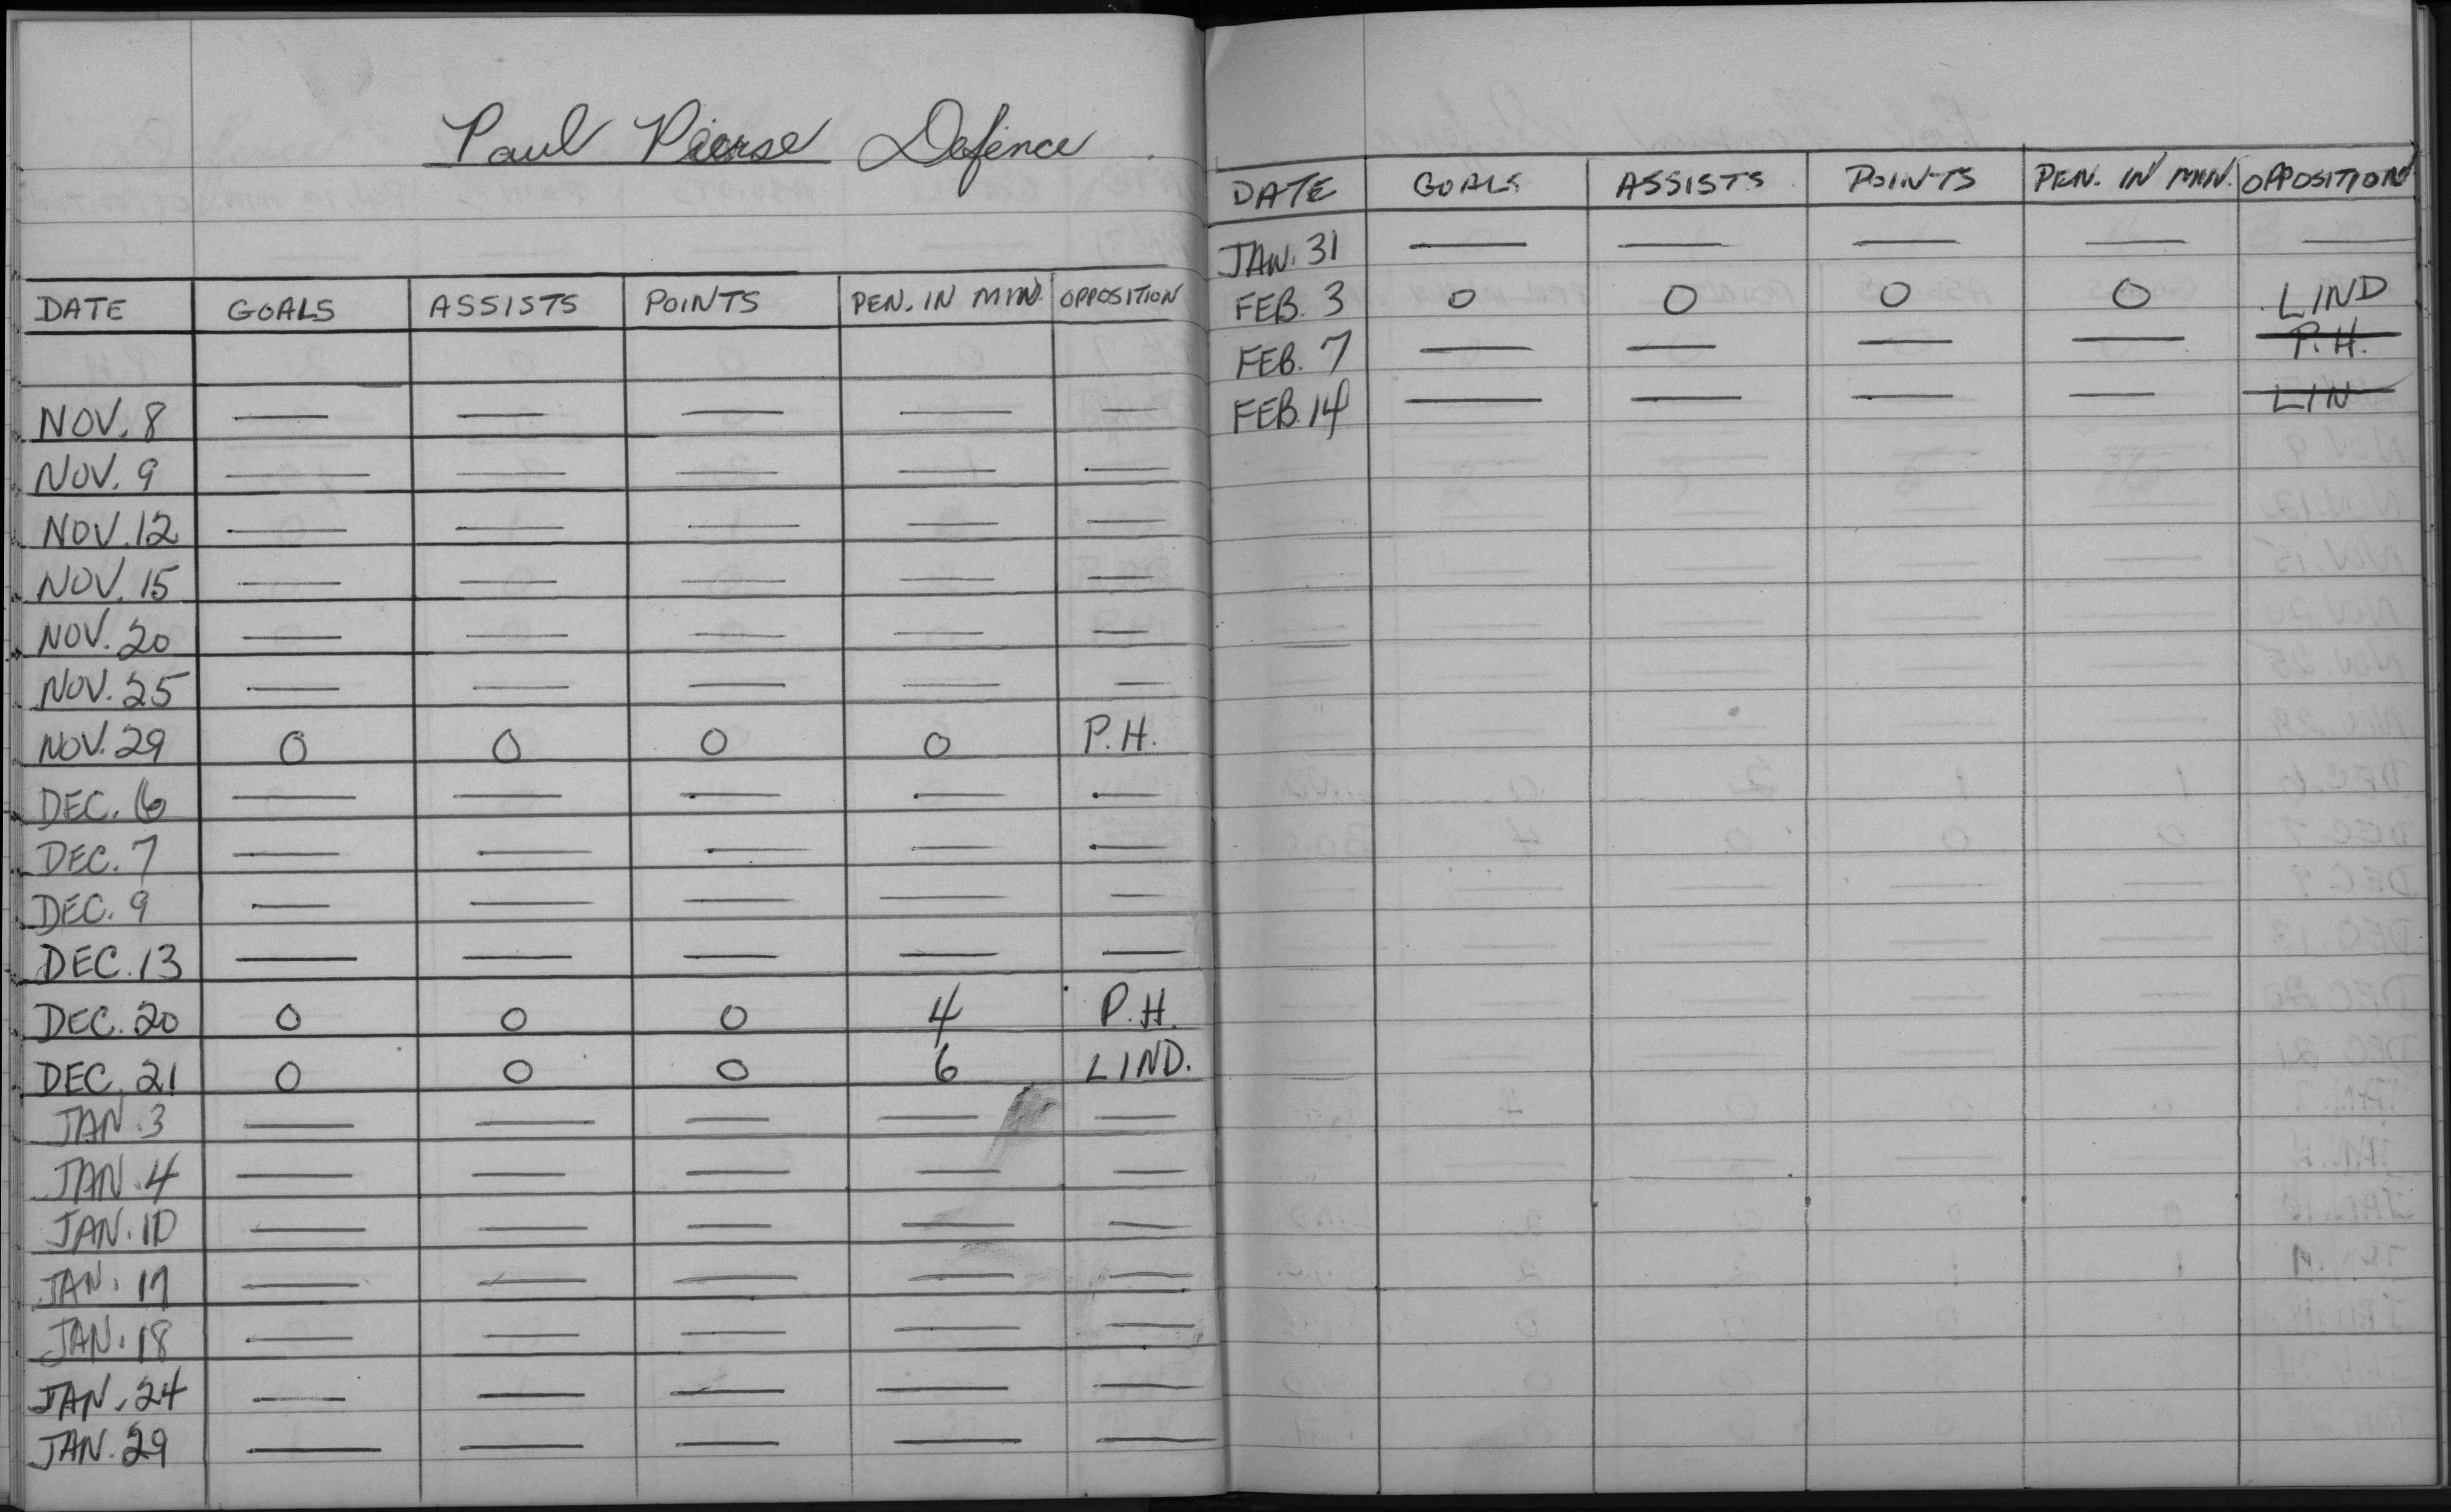 Paul Pierse Defence
DATE GOALS ASSISTS POINTS PEN. IN MIN. OPPOSITION
NOV. 8 — — — — —
NOV. 9 — — — — —
NOV. 12 — — — — —
NOV. 15 — — — — —
NOV. 20 — — — — —
NOV. 25 — — — — —
NOV. 29 0 0 0 0 P.H.
DEC. 6 — — — — —
DEC. 7 — — — — —
DEC. 9 — — — — —
DEC. 13 — — — — —
DEC. 20 0 0 0 4 P.H.
DEC. 21 0 0 0 6 LIND.
JAN. 3 — — — — —
JAN. 4 — — — — —
JAN. 10 — — — — —
JAN. 17 — — — — —
JAN. 18 — — — — —
JAN. 24 — — — — —
JAN. 29 — — — — —
DATE GOALS ASSISTS POINTS PEN. IN MIN. OPPOSITION
JAN. 31 — — — — —
FEB. 3 0 0 0 0 LIND
FEB. 7 — — — — P.H.
FEB. 14 — — — — LIN